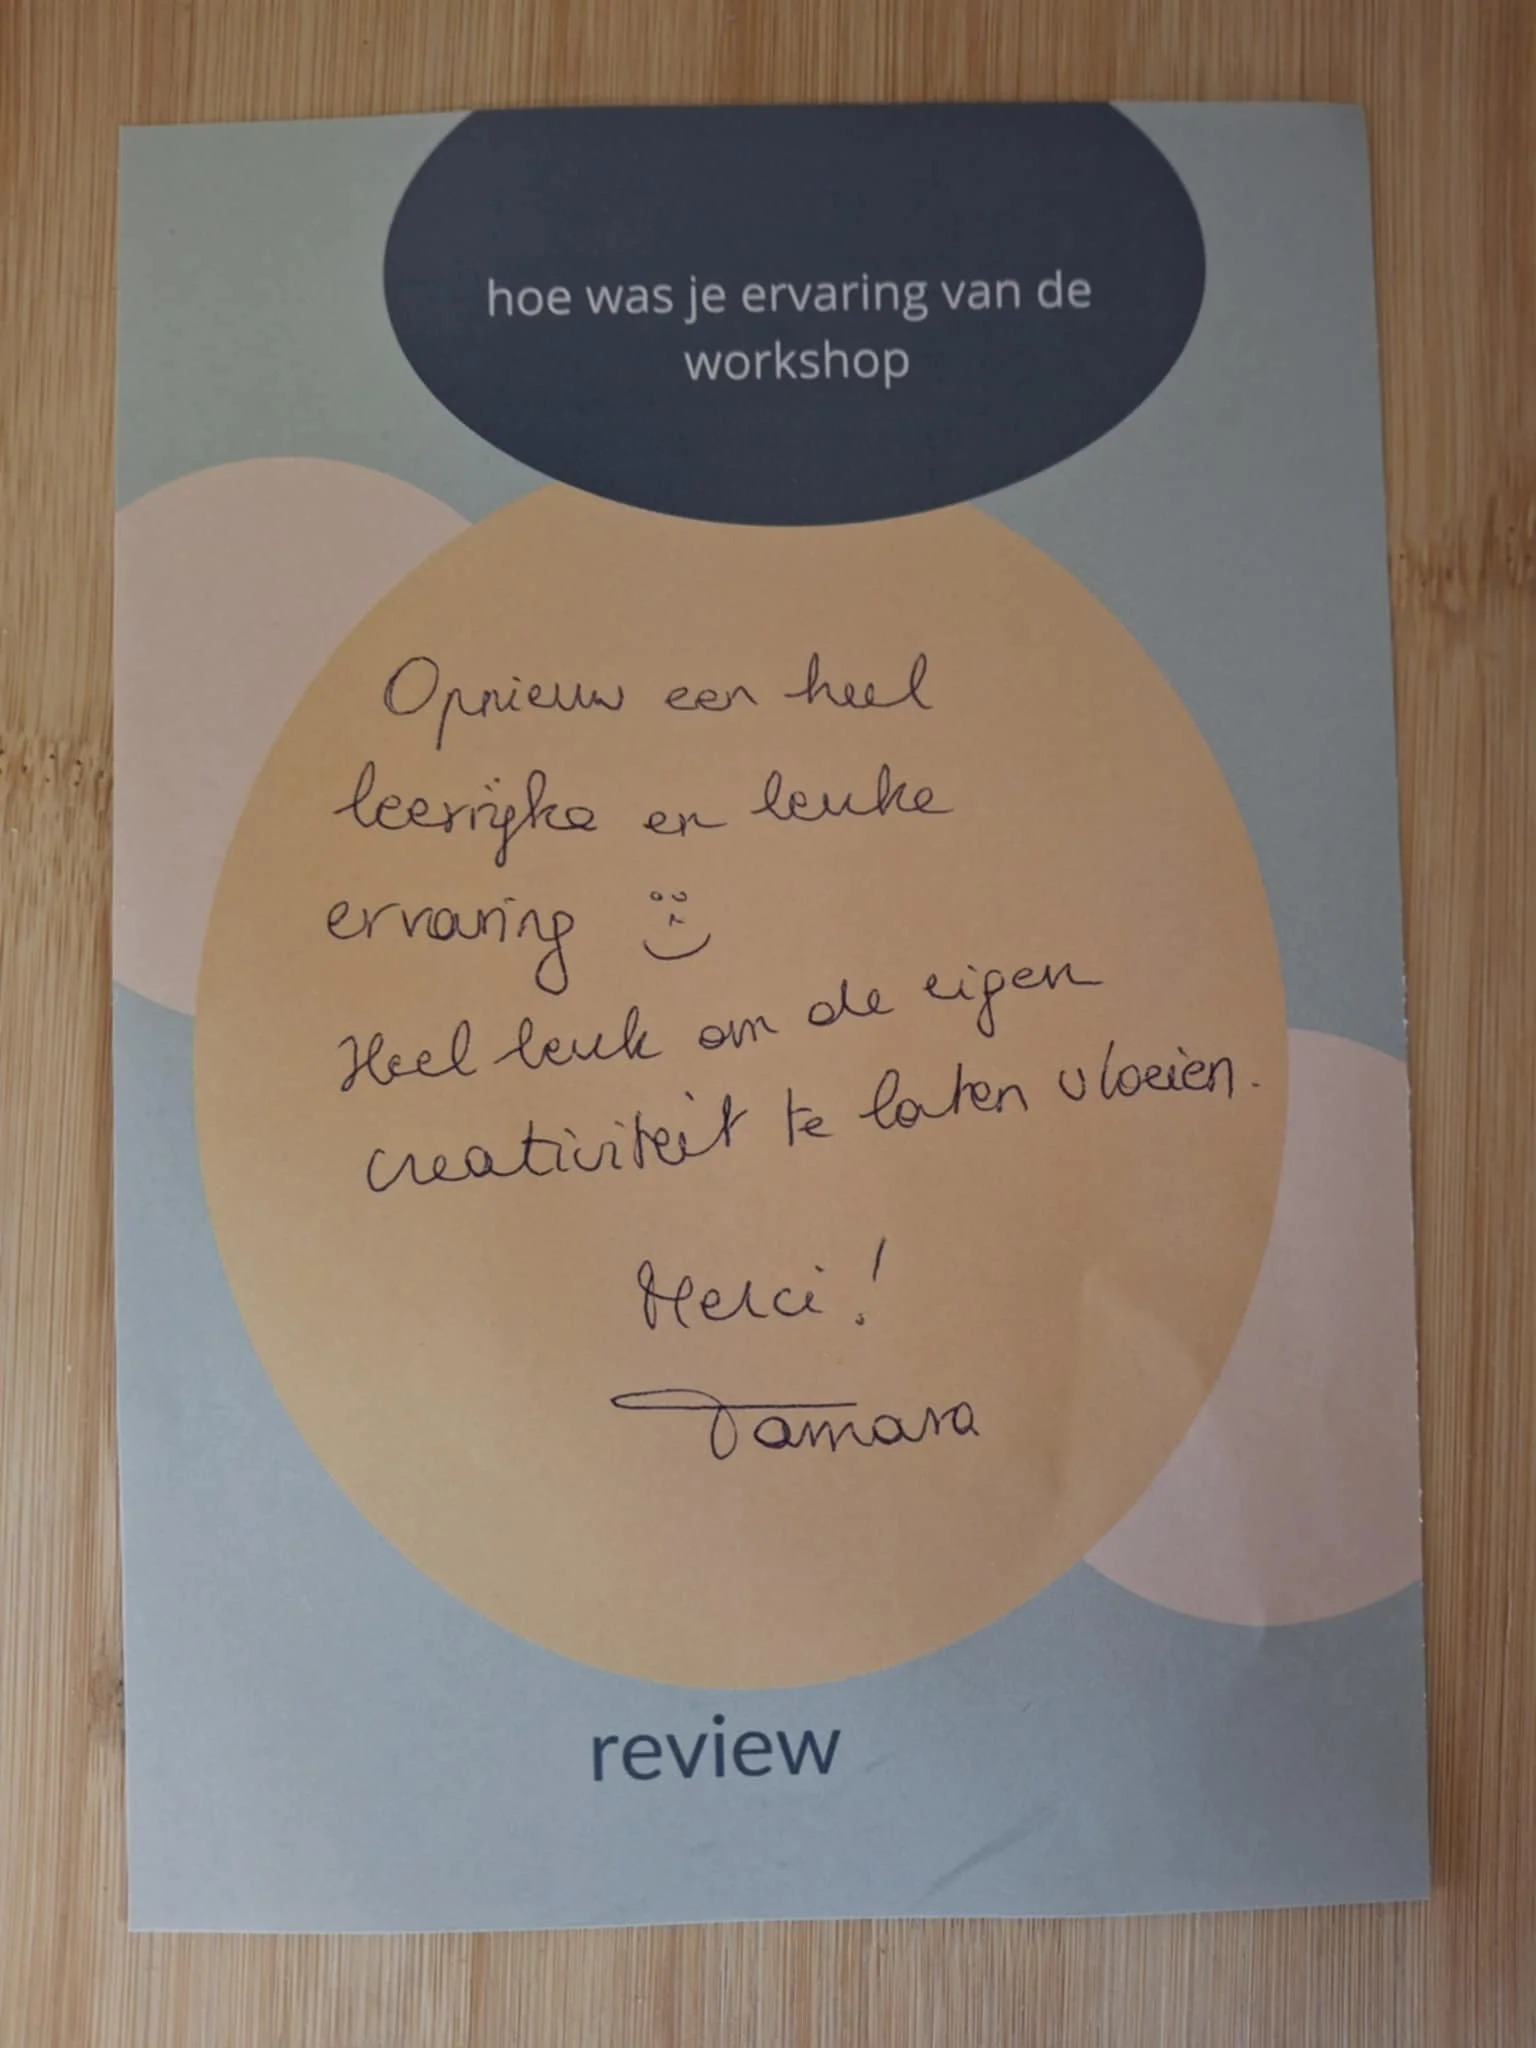 hoe was je ervaring van de
workshop
Opnieuw een heel
leerrijke en leuke
ervaring
Heel leuk om de eigen
creativiteit te laten vloeien.
Merci!
Tamara
review